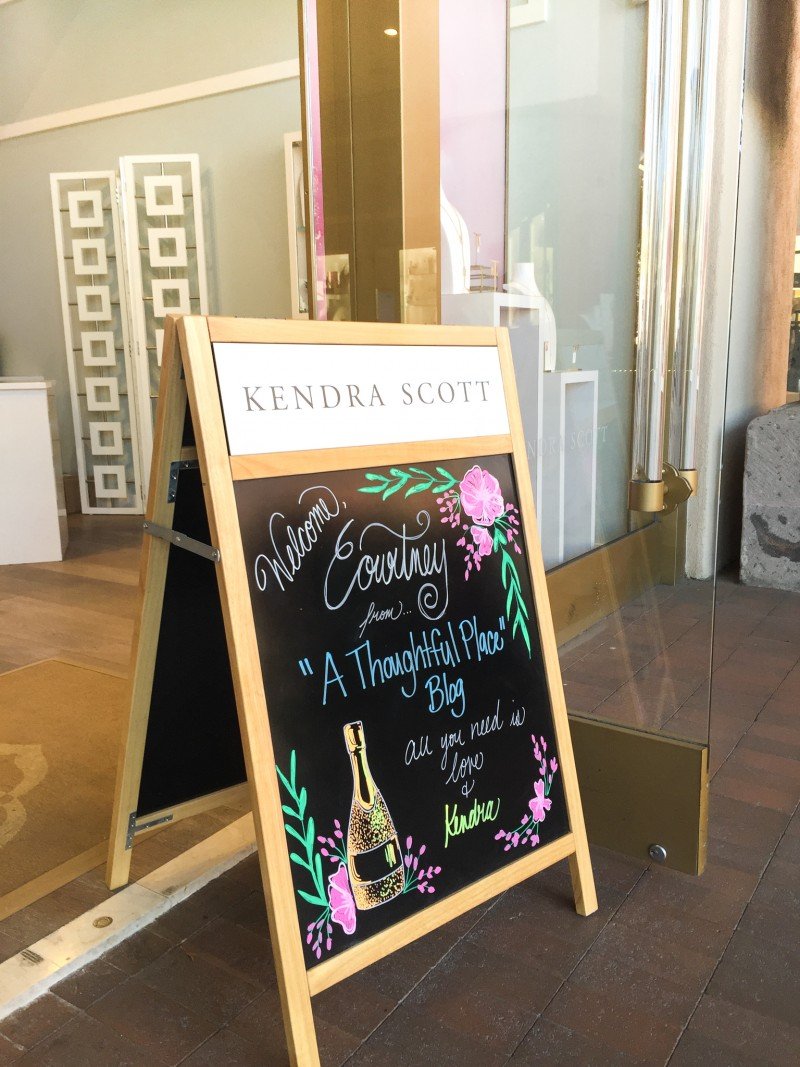 KENDRA SCOTT
Welcome,
Courtney
from...
"A Thoughtful Place"
Blog
all you need is
love
&
Kendra
SCOTT